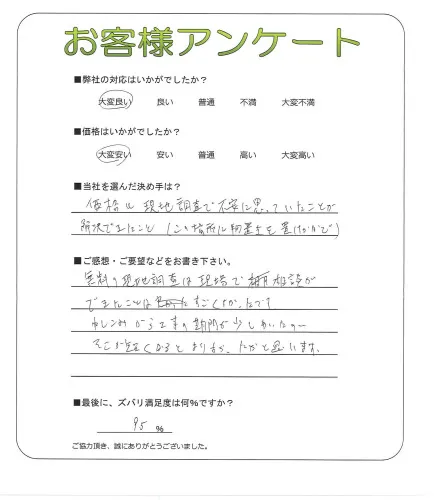 お客様アンケート
■弊社の対応はいかがでしたか？
大変良い 良い 普通 不満 大変不満
■価格はいかがでしたか？
大変安い 安い 普通 高い 大変高い
■当社を選んだ決め手は？
価格と現地調査で不安に思っていたことが
解決できたこと（この場所に物置を置けるかどうか）
■ご感想・ご要望などをお書き下さい。
無料の現地調査は現場で相談が
できたことはすごくよかったです
から工事の期間が少し
そこが短くなるとよりよかったかと思います。
■最後に、ズバリ満足度は何%ですか？
95 %
ご協力頂き、誠にありがとうございました。